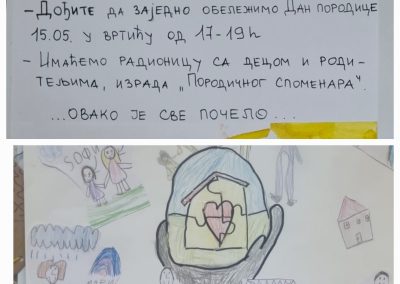 – Дођите да заједно обележимо Дан породице
15.05. у вртићу од 17-19h
– Имаћемо радионицу са децом и роди-
тељима, израда „Породичног споменара“.
...овако је све почело...